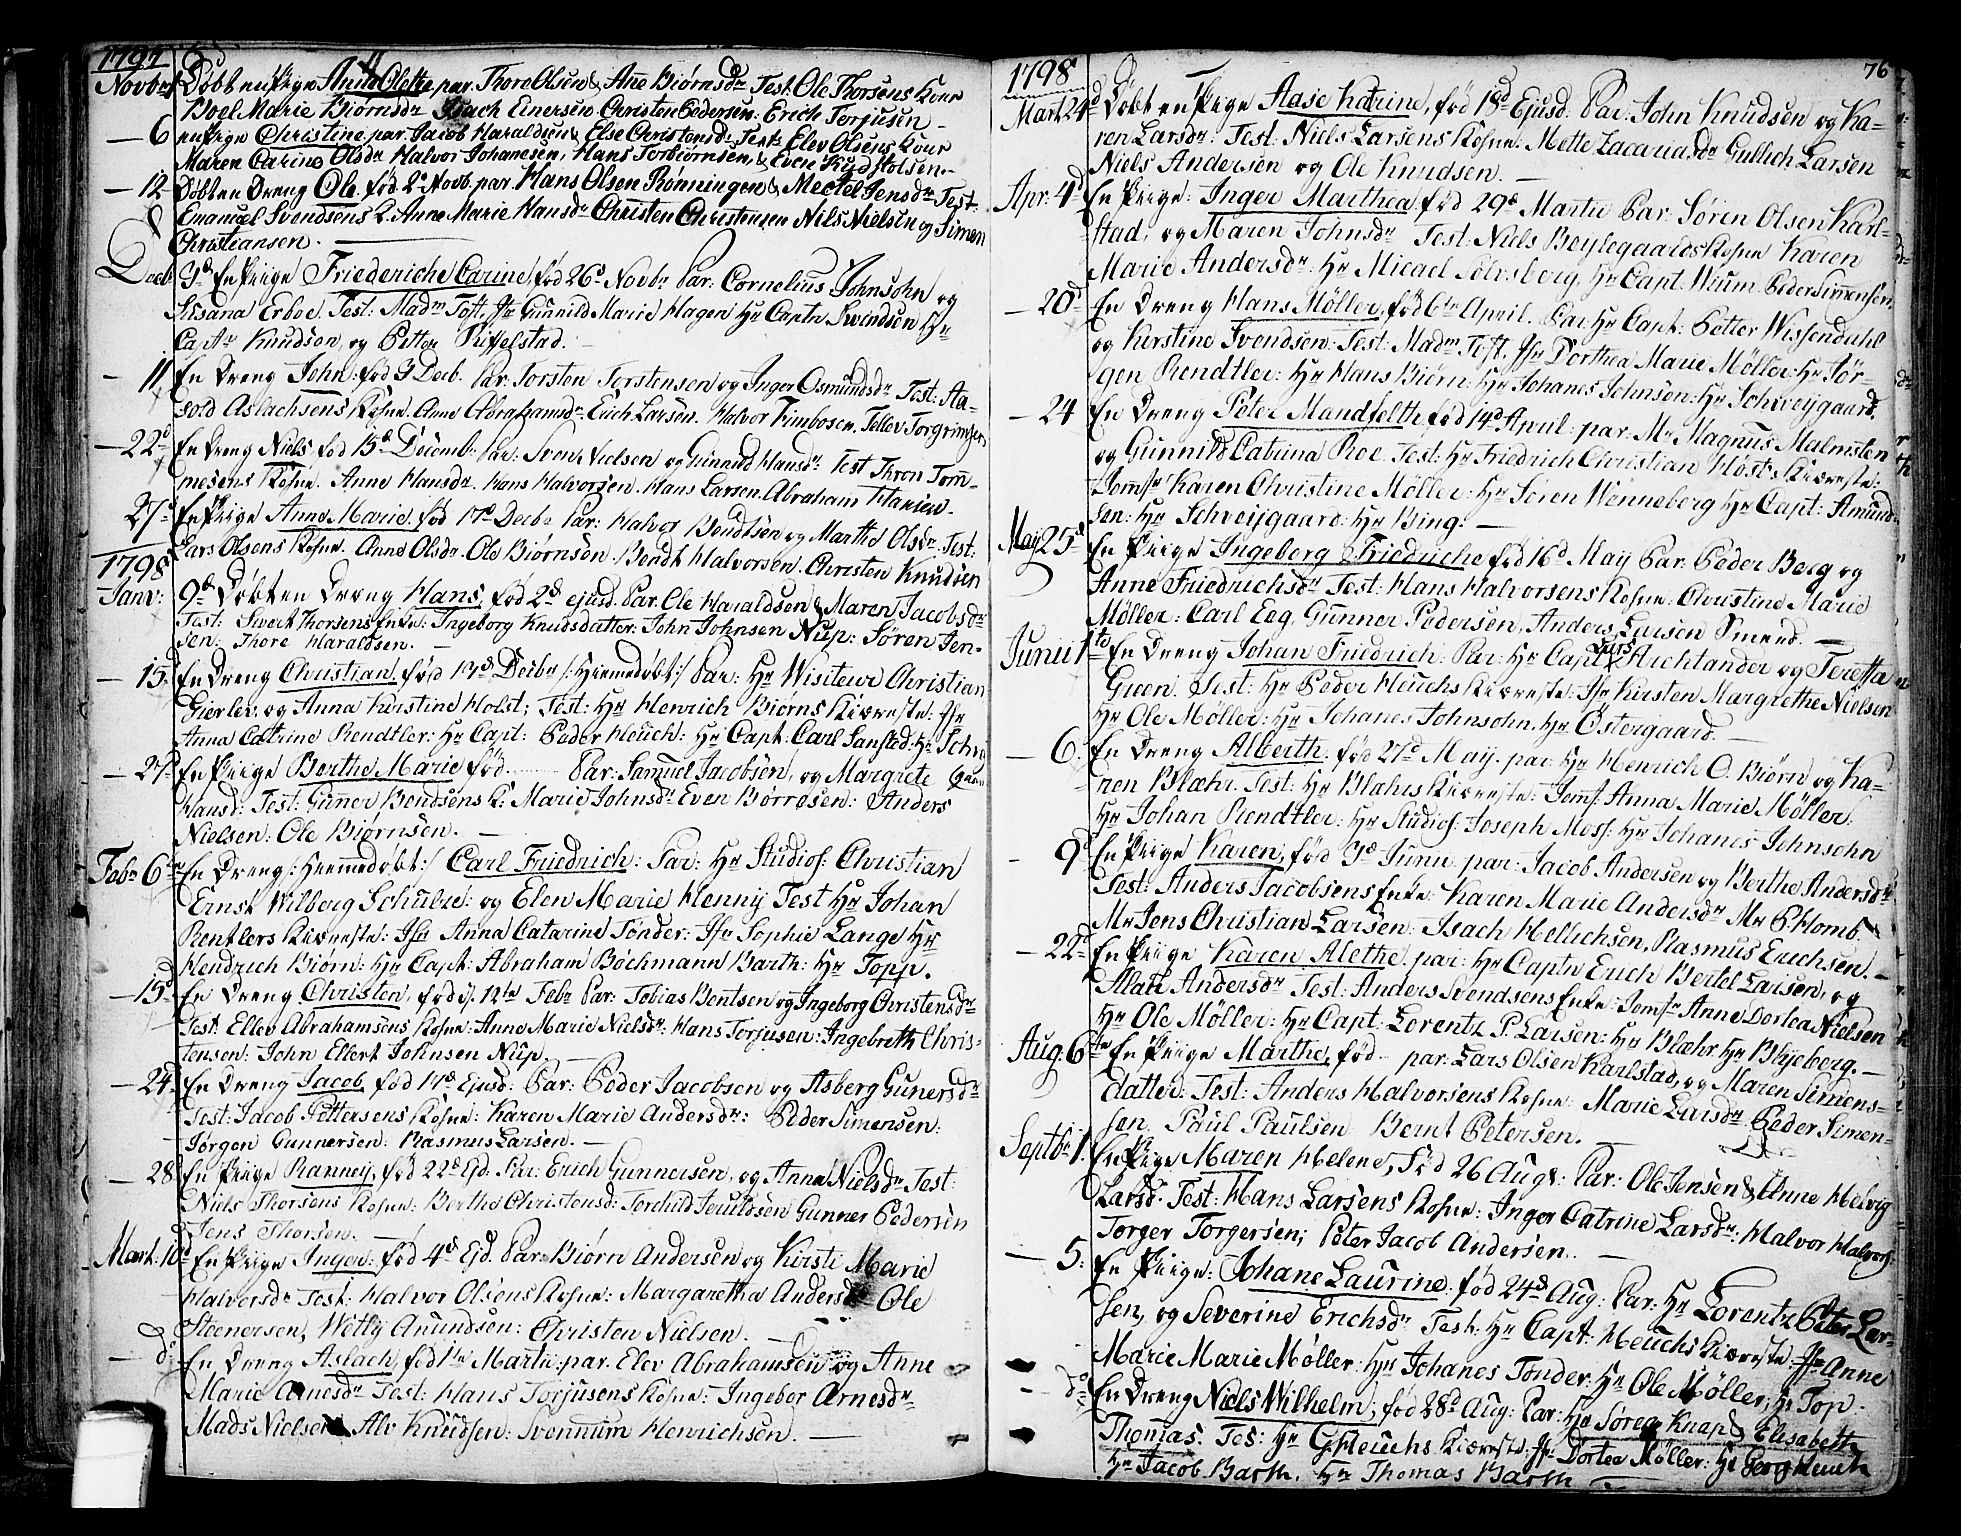 1797
Novbr 4 Døbt en Pige Anne Olette par. Thore Olsen & Ane Biørnsdr Test: Ole Thorsens Kone
Boel Marie Biørnsdr Isach Einersen Christen Pedersen: Erich Torjusen
— 6 en Pige Christine par. Jacob Haraldsen & Else Christensdr Test: Elev Olsens Kone
Maren Carine Olsdr Halvor Johanesen, Hans Torbiørnsen, & Even
— 12 Døbt en Dreng Ole. fød 2d Novb. par. Hans Olsen Rønningen & Mectel Jensdr Test:
Emanuel Svendsens K. Anne Marie Hansdr Christen Christensen Nils Nielsen og Simen
Christiansen.
Decb. 3d En Piige Friederiche Carine, fød 26d Novbr Par: Cornelius Johnsohn og
Susana Erboe. Test: Madm Toft. Jfr Gunnild Marie Hagen Hr Captn Svendsen Hr
Captn Knudsen, og Petter Riffelstad.
— 11 En Dreng John: fød 3 Decb. Par: Torsten Torstensen og Inger Osmundsdr Test: Aa-
sold Aslachsens Kohne. Anne Abrahamsdr Erich Larsen. Halvor Kimbosen, Tellev Torgrimsen
— 22d En Dreng Niels fød 15d Decemb: Par: Svend Nielsen og Gunnild Hansdr Test Thron Tom-
mesens Kohne. Anne Hansdr. Hans Halvorsen. Hans Larsen. Abraham
27d En Piige Anne Marie. fød 17d Decbr Par: Halvor Bendtsen og Marthe Olsdr Test:
Lars Olsens Kohne. Anne Olsdr. Ole Biørnsen. Bendt Halvorsen. Christen Knudsen
1798
Janv: 9d Døbt en Dreng Hans, fød 2d ejusd. Par. Ole Haraldsen & Maren Jacobsdr
Test: Sivert Thorsens Enke: Ingeborg Knudsdatter: John Johnsen Nup: Søren Jen-
sen: Thore Haraldsen. —
— 15. En Dreng Christian, fød 13d Decbr /: Hiemmedøbt:/ Par: Hr Visiteur Christian
Gierlev. og Anna Kirstine Holst; Test: Hr Henrich Biørns Kiereste: Jfr
Anna Catrine Rendtler: Hr Capt: Peder Heuch: Hr Capt: Carl Sansted: Hr Schvei
— 27d En Piige Berthe Marie fød Par: Samuel Jacobsen, og Margrete gaar
Hansd: Test: Gunner Bendsens K: Marie Johnsdr Even Børresen: Anders
Nielsen: Ole Biørnsen. —
Febr 6te En Dreng /: Hiemmedøbt:/ Carl Friedrich: Par: Hr Studios: Christian
Ernst Wilberg Schultze: og Elen Marie Henny Test Hr Johan
Rentlers Kiereste: Jfr Anna Catarine Tønder: Jfr Sophie Lange Hr
Hendrich Biørn: Hr Capt: Abraham Bochmann Barth: Hr Topp.
— 15d En Dreng Christen, fød d. 12te Febr Par: Tobias Bentsen og Ingeborg Christensdr
Test: Ellev Abrahamsens Kohne: Anne Marie Nielsdr: Hans Torjusen: Ingebreth Chris-
tensen: John Ellert Johnsen Nup. —
— 24. En Dreng Jacob, fød 17d Ejusd: Par: Peder Jacobsen og Asberg Gunersdr
Test: Jacob Pettersens Kohne: Karen Marie Andersdr: Peder Simensen:
Jørgen Gunnersen: Rasmus Larsen. —
— 28 En Piige Ranney, fød 22d Ejd. Par: Erich Gunnersen, og Anne Nielsdr Test:
Niels Thorsens Kohne: Berthe Christensd: Torchild Jeruldsen Gunner Pedersen
Jens Thorsen.
Mart. 10d En Piige Inger: fød 4d Ejd. Par: Biørn Andersen og Kirsti Marie
Halvorsdr Test: Halvor Olsens Kohne: Margaretha Andersdr Ole
Steenersen, Wetly Amundsen: Christen Nielsen. —
— do En Dreng Aslach, fød 1te Martii: par. Elev Abrahamsen og Anne
Marie Arnesdr Test: Hans Torjusens Kohne: Ingebor Arnesdr
Mads Nielsen Alv Knudsen: Svennum Henrichsen. —
76
1798
Mart 24d Døbt en Piige Aase Katrine, fød 18d Ejusd. Par: John Knudsen og Ka-
ren Larsdr: Test. Niels Larsens Kohne: Mette Zacariasdr Gullich Larsen
Niels Andersen og Ole Knudsen. —
Apr. 4d En Piige: Inger Marthea fød 29d Martii Par: Søren Olsen Karl-
stad, og Maren Johnsdr Test: Niels Beylegaards Kohne Karen
Marie Andersdr: Hr Micael Solvsberg. Hr Capt: Wium. Peder Simensen.
— 20d En Dreng Hans Møller, fød 6te April. Par: Hr Capt: Petter Wissendahl
og Kerstine Svendsen: Test: Madm Toft. Jfr Dorthea Marie Møller: Hr Jør-
gen Rendtler: Hr Hans Biørn: Hr Johanes Johnsen: Hr Schveijgaard.
— 24 En Dreng Peter Mandfelth fød 14d April: par. Mr Magnus Malmsten
og Gunnild Catrina Roe. Test: Hr Friedrich Christian Høsts Kiereste:
Jomfr Karen Christine Møller: Hr Søren Wenneberg Hr Capt: Amund-
sen: Hr Schveijgaard: Hr Bing: —
May 25d En Piige Ingeborg Friedriche fød 16d May Par: Peder Berg og
Anne Friedrichsdr Test: Hans Halvorsens Kohne: Christine Marie
Møller: Carl Eeg, Gunner Pedersen, Anders Larsen Smend. —
Junii 1te En Dreng Johan Friedrich: Par: Hr Capt Lars Archtander og Teretta
Green. Test: Hr Peder Heuchs Kiereste: Jfr Kirsten Margrethe Nielsen
Hr Ole Møller: Hr Johanes Johnsohn. Hr Østergaard. —
— 6. En Dreng Alberth: fød 27d May. par: Hr Henrich O. Biørn og Ka-
ren Blæhr. Test: Hr Blæhrs Kiereste: Jomf: Anna Marie Møller:
Hr Johan Rendtler: Hr Studios: Joseph Moss: Hr Johanes Johnsohn
— 9d En Piige Karen, fød 3d Junii par: Jacob Andersen og Berthe Andersdr
Test: Anders Jacobsens Enke: Karen Marie Andersdr Mr P. Homb.
Mr Jens Christian Larsen: Isach Hellichsen, Rasmus Erichsen. —
— 22d En Piige Karen Alethe. par: Hr Captn Erich Bertel Larsen, og
Alatz Andersdr Test: Anders Svendsens Enke: Jomfr Anne Dortea Nielsen
Hr Ole Møller: Hr Capt: Lorentz P. Larsen: Hr Blæhr Hr Blyeberg. —
Aug. 6te En Piige Marthe, fød par: Lars Olsen Karlstad, og Maren Simens-
datter: Test: Anders Halvorsens Kohne: Marie Larsdr Peder Simen-
sen. Paul Paulsen Bernt Petersen.
Septbr 1. En Piige Maren Helene, Fød 26 Aug: Par: Ole Jensen & Anne Helvig
Larsd: Test: Hans Larsens Kohne: Inger Catrine Larsdr: Halvor Halvors:
Torger Torgersen; Peter Jacob Andersen. —
— 5: En Piige: Johane Laurine. fød 24d Aug: Par: Hr Lorentz Peter Lar-
sen, og Severine Erichsdr Test: Hr Capt: Heuchs Kiereste Jfr Anne
Marie Marie Møller: Hr Johanes Tønder: Hr Ole Møller, Hr Top
— do En Dreng Niels Wilhelm, fød 28d Aug: Par: Hr Søren Knap & Elisabeth
Thomas. Tes: Hr G Heuchs Kiereste: Jfr Dortea Møller: Hr Georg Heuch
Hr Jacob Barth. Hr Thomas Barth